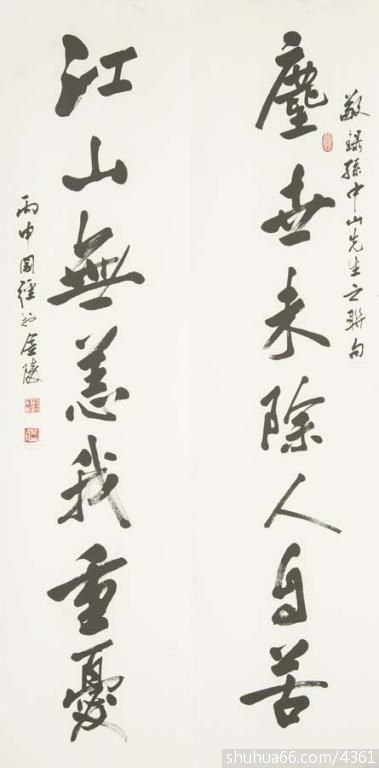 敬録孫中山先生之聯句
塵世未除人自苦
江山無恙我重憂
丙申国經於金陵
shuhua66.com/4361